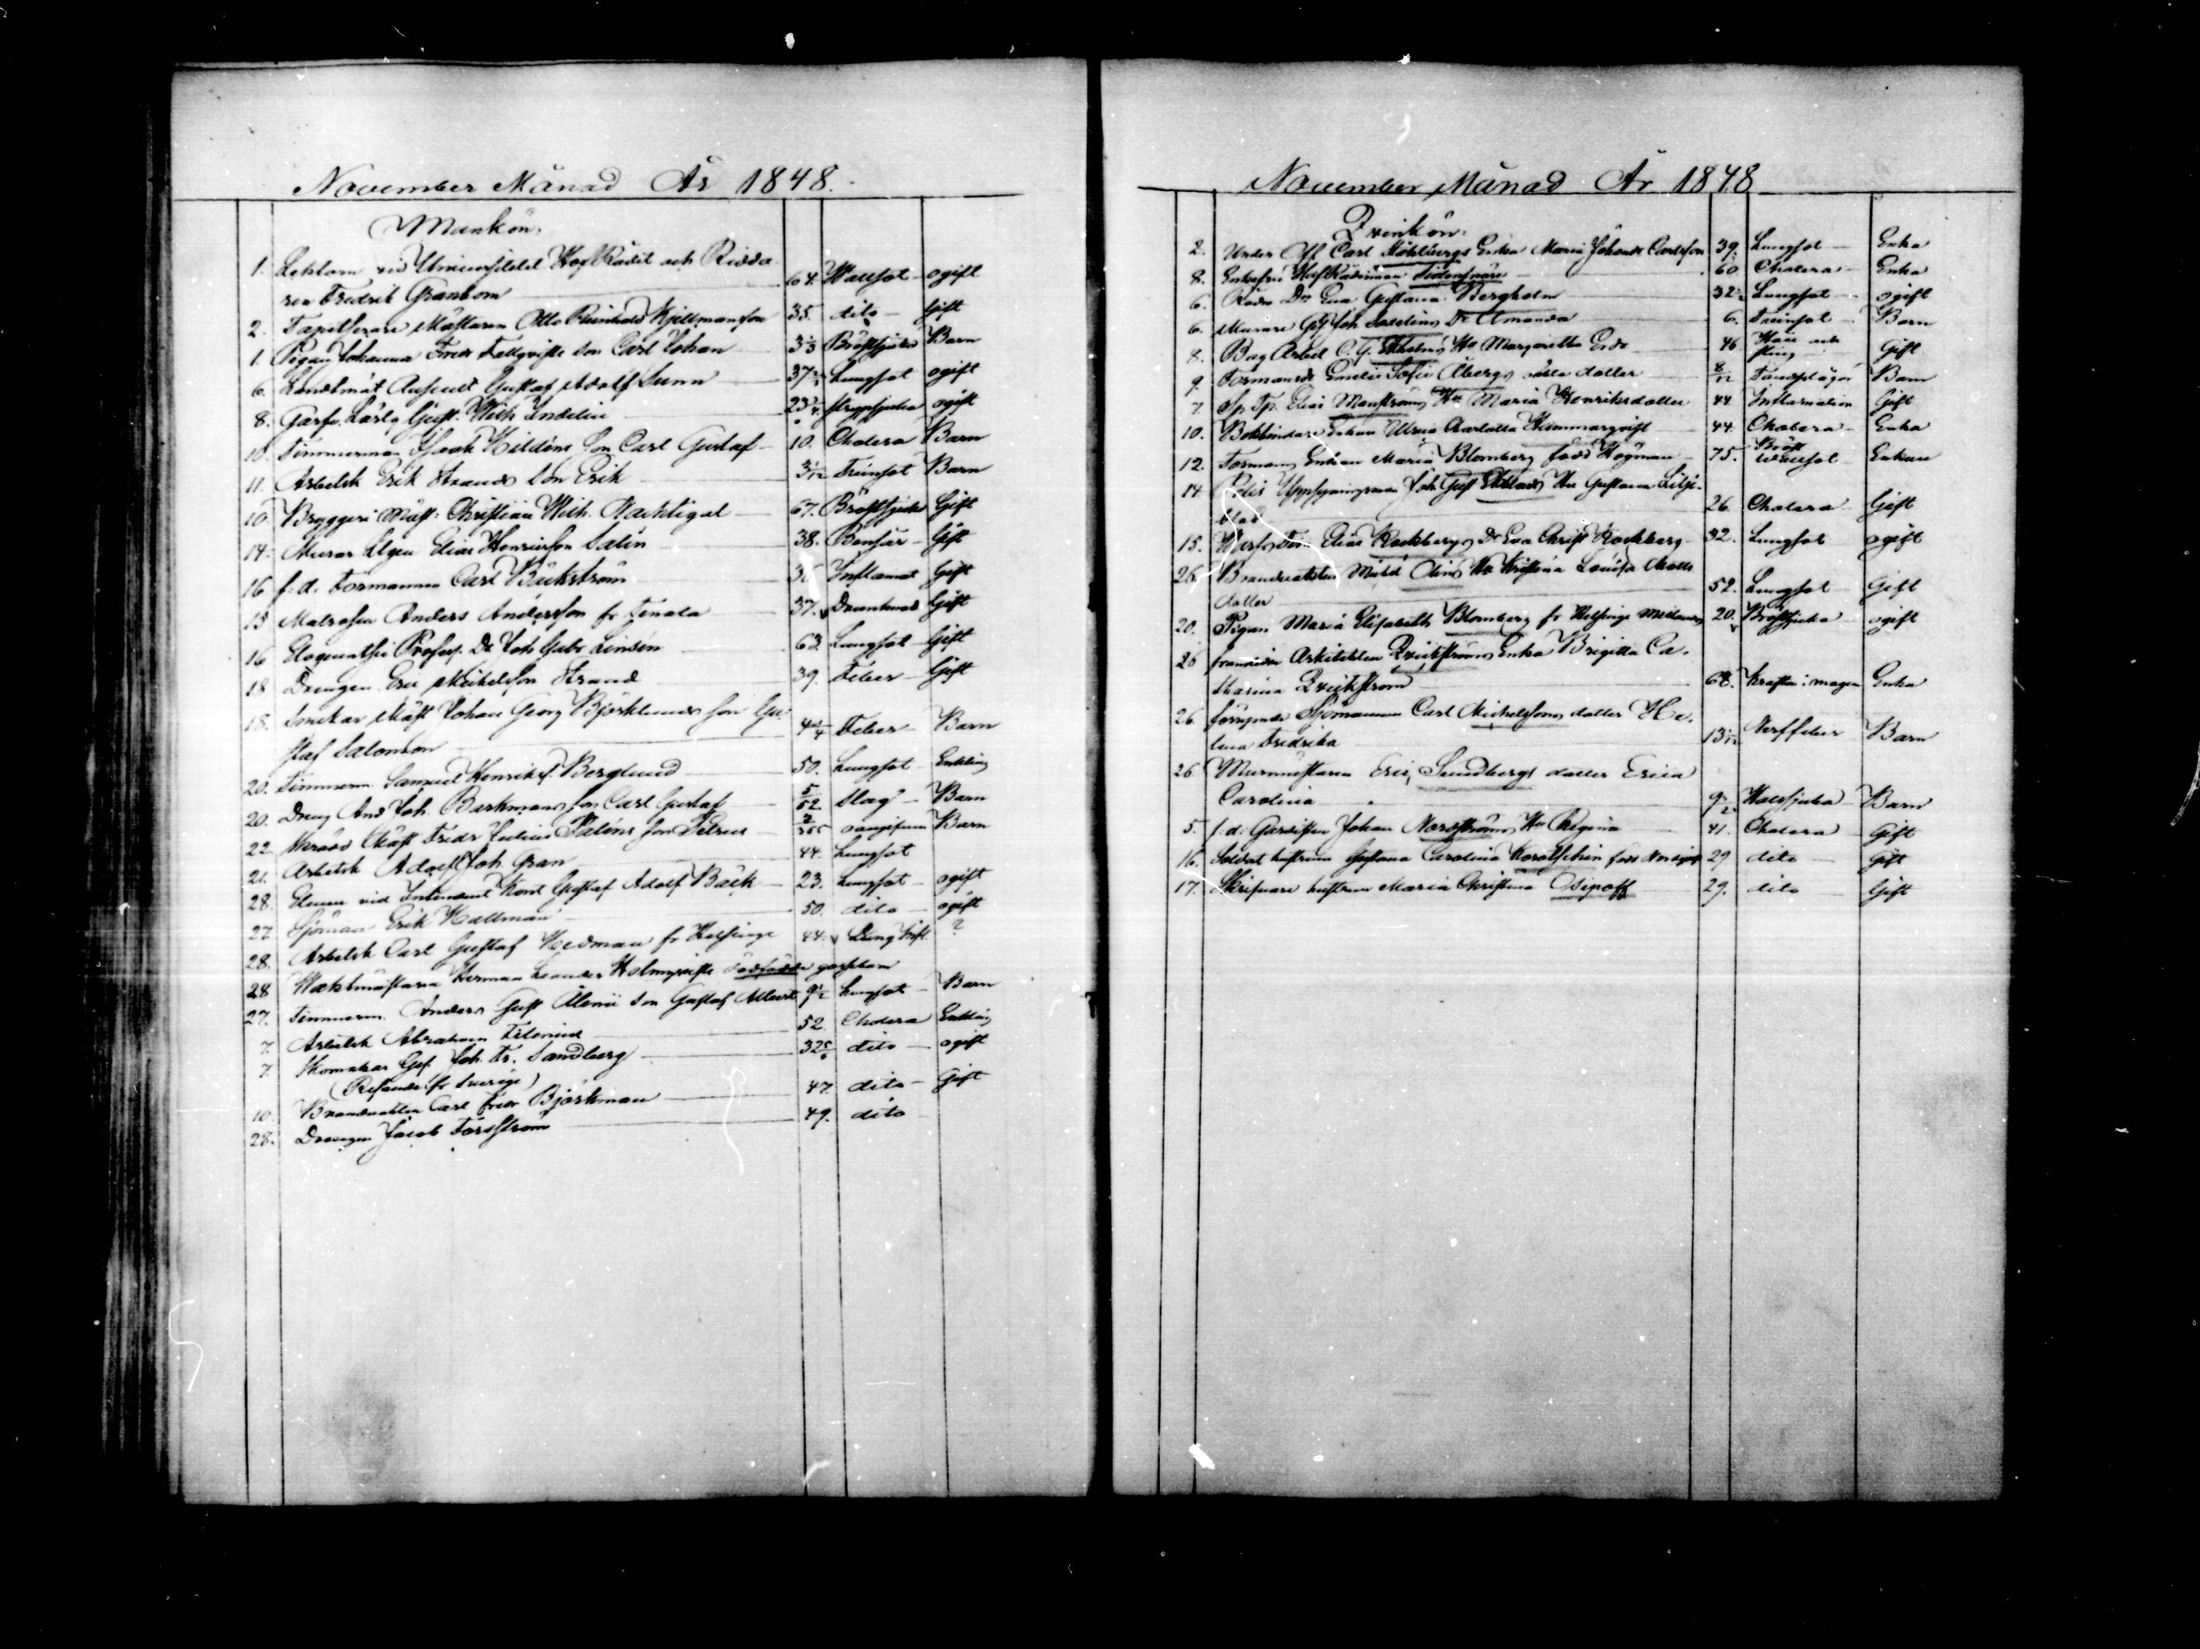 November Månad År 1848.
Mankön.
1. Lektorn vid Universitetet HofRådet och Ridda
ren Fredrik Granbom 64. Wattsot ogift
2. Tapetserare Mästaren Otto Reinhold Kjellmansson 35. dito Gift
1. Pigan Johanna Fredr Fallqvists son Carl Johan Bröstsjuka Barn
6. Landtmät Auscult Gustaf Adolf Sunn Lungsot ogift
8. Garfv. Lärlg Gust. Wilh Indelin Strypsjuka ogift
10. Timmerman Isaak Hildéns Son Carl Gustaf 10. Cholera Barn
11. Arbetsk Erik Strands Son Erik Trinsot Barn
10. Bryggeri Mäst: Christian Wilh. Nachtigal 67. Bröstsjuka Gift
14. Murar Elias Henricsson Salin 38. Bensår Gift
16 f: d: Formannen Carl Bäckström Inflamat Gift
15 Matrosen Anders Andersson fr Tenala 37. Drunknad Gift
16 Eloquentiæ Profess. Dr Joh Gabr Linsén 62 Lungsot Gift
18 Drengen Eric Michelsson Strand 39. Feber Gift
18. Mäst Johan Georg Björklunds son Gu
staf Salomon Feber Barn
20. Timmerm. Samuel Henriksf Berglund 50. Lungsot Enkling
20. Dreng And Joh. Barkmans son Carl Gustaf 5/52 Slag Barn
22. Mäst Fredr Julius Paléns son Petrus Barn
21. Arbetsk Adolf Joh. Gran 44. Lungsot
28. Eleven vid Intendent Kont Gustaf Adolf Back 23. Lungsot ogift
27 Sjöman Erik Hallman 50. dito ogift
28. Arbetsk Carl Gustaf Hedman fr Helsinge 44. ?
28 Waktmästaren Herman Leander Holmqvists dödfödda gossebarn
27. Timmerm. Anders Gust Alenii Son Gustaf Albert Lungsot Barn
7. Arbetsk Abraham 52 Cholera Enkling
7. Skomakar Ges. Joh. Fr. Sandberg dito ogift
(Resande fr Sverige)
10 Brandvakten Carl Fredr Björkman 47. dito Gift
28. Drengen Jacob Forsström 49. dito
November Månad År 1848
Qvinkön.
2. Under Off Carl Enka Maria Johanna Carlsson 39. Lungsot Enka
8. Enkefru HofRådinnan 60 Cholera Enka
6. Dr Eva Gustava Bergholm Lungsot ogift
6. Murare Ges Joh Dr Amanda 6. Trinsot Barn
8. Bag Arbet C. G. Ekholms Hu Margaretha 46 Gift
9. Formansd Emelie Sofie Åbergs oäkta dotter 8/12 Barn
7. Elias Manströms Hu Maria Henriksdotter 44 Inflamation Gift
10. Bokbindare Enkan Ulrica Charlotta Hammarqvist 44. Cholera Enka
12. Formans Enkan Maria Blomberg född Högman 75. Bröst Wattsot Enkan
14 Polis Uppsyningsman Joh Gust Ekblads Hu Gustava Lilje-
blad 26. Cholera Gift
15. Elias Rockbergs Dr Eva Christ Rockberg 32. Lungsot ogift
26. Brandvakten Hu Kristina Lovisa
dotter 52. Lungsot Gift
20. Pigan Maria Elisabeth Blomberg fr Helsinge 20. Bröstsjuka ogift
26 framlidne Arkitekten Qvickströms Enka Brigitta Ca-
tharina Qvickström 68. Kräfta i magen Enka
26. förrymde Sjömannen Carl Michelssons dotter He-
lena Fredrika Nerffeber Barn
26 Murmästaren Eric Sundbergs dotter Erica
Carolina Halssjuka Barn
5. f. d: Gardisten Johan Nordströms Hu Regina 41. Cholera Gift
16. Soldat hustrun Gustava Carolina född 29 dito Gift
17. Skrifvare hustrun Maria Christina Osipoff 29. dito Gift